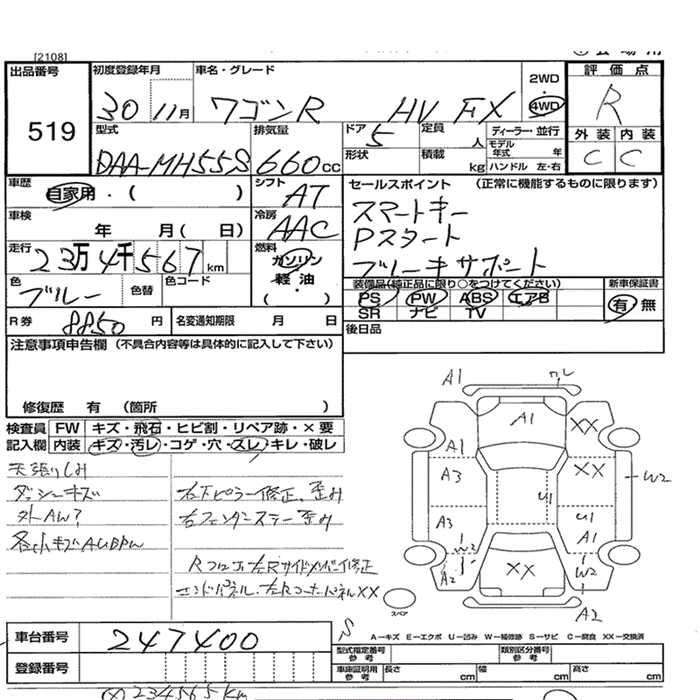 [2108]
出品番号
519
初度登録年月
30 11月
車名・グレード
ワゴンR HV FX
2WD
・
4WD
評価点
R
外装 内装
C C
型式
DAA-MH55S
排気量
660cc
ドア
5
定員
人
形状
積載
kg
ディーラー・並行
モデル年式 年
ハンドル 左・右
車歴
自家用・( )
シフト
AT
車検
年 月( 日)
冷房
AAC
走行
23万4千567km
燃料
ガソリン
・
軽油
・
( )
色
ブルー
色替
色コード
セールスポイント (正常に機能するものに限ります)
スマートキー
Pスタート
ブレーキサポート
装備品(純正品に限り○をつけてください)
PS PW ABS エアB
SR ナビ TV
新車保証書
有 無
後日品
R券 8850円
名変通知期限 月 日
注意事項申告欄(不具合内容等は具体的に記入して下さい)
修復歴 有 (箇所 )
検査員記入欄
FW キズ・飛石・ヒビ割・リペア跡・×要
内装 キズ・汚レ・コゲ・穴・スレ・キレ・破レ
天張りしみ
ダッシーキズ
外AW?
各小キズAUBPW
右下ピラー修正、歪み
右フェンダーステー歪み
Rフロア、左Rサイドメンバー修正
エンドパネル、左RコーナーパネルXX
A1
A1
XX
A1
A3
XX
W2
U1
A3
U1
A1
W3
A2
XX
W2
A2
スペア
S
A－キズ E－エクボ U－凹み W－補修跡 S－サビ C－腐食 XX－交換済
車台番号
247400
登録番号
型式指定番号
参考
類別区分番号
参考
車庫証明用
参考
長さ cm
幅 cm
高さ cm
234565km